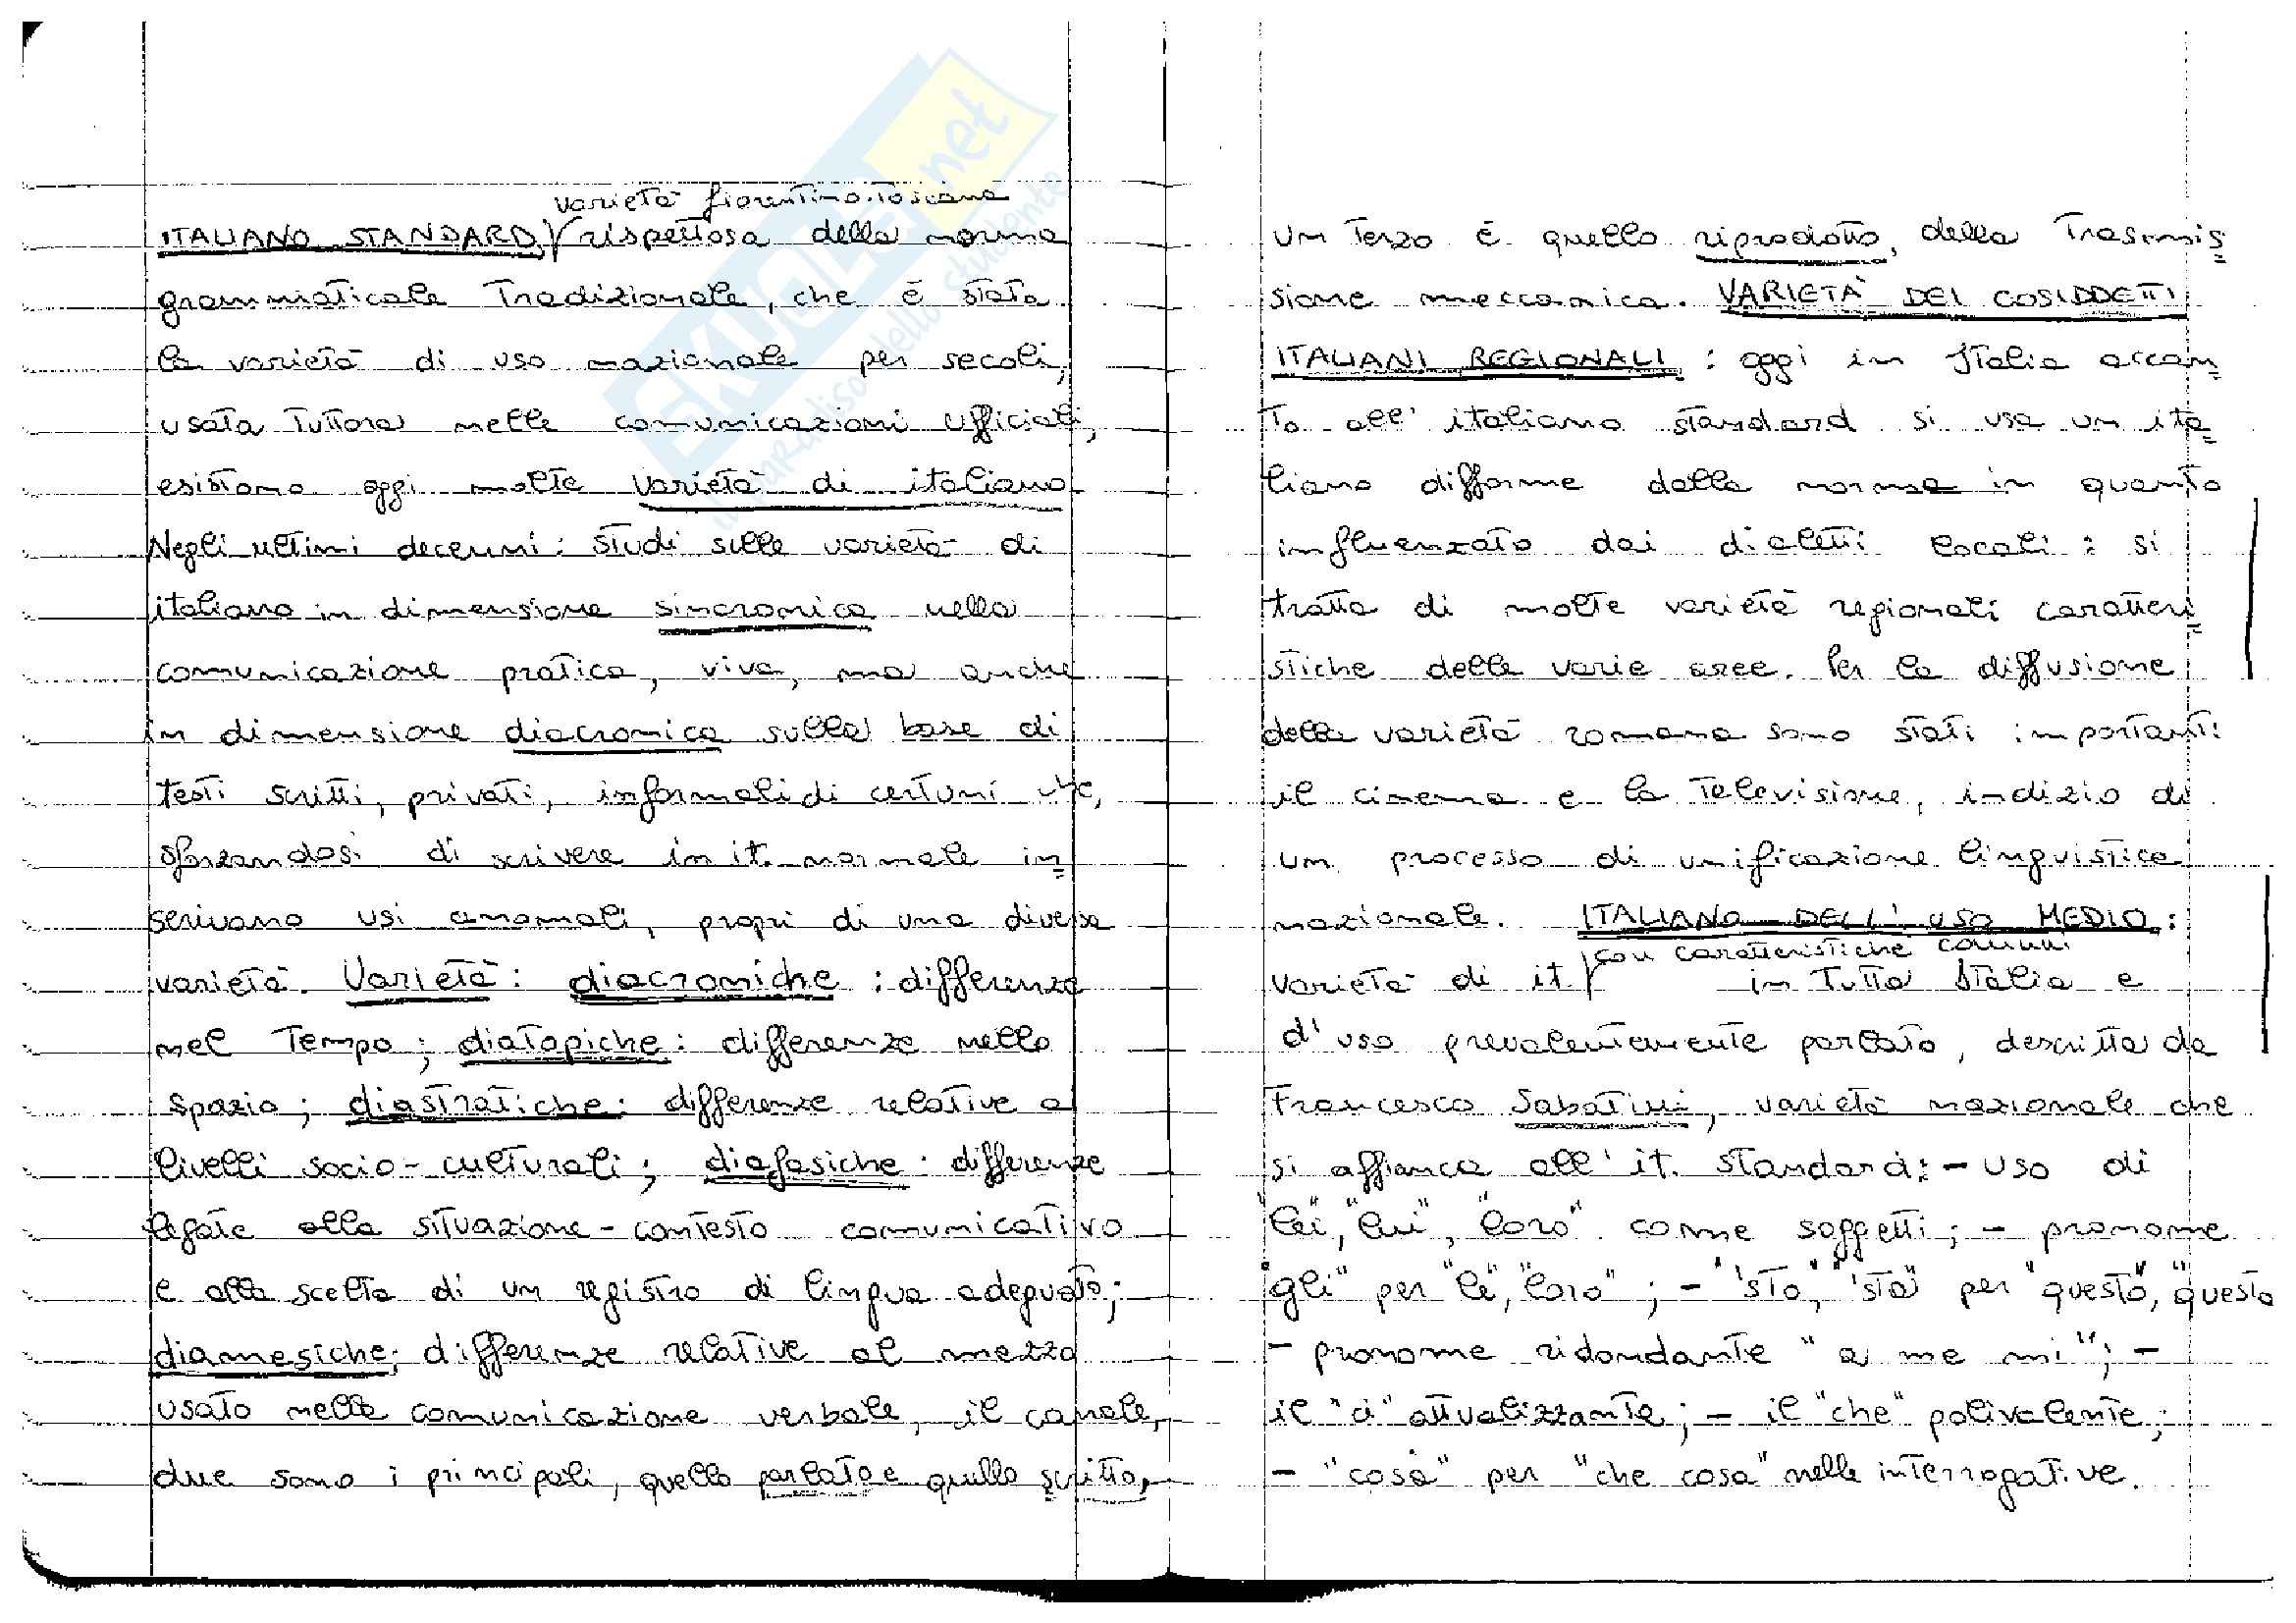 SKUOLA.net
il paradiso dello studente
varietà fiorentino-toscana
ITALIANO STANDARD, rispettosa della norma
grammaticale tradizionale, che è stata
la varietà di uso nazionale per secoli,
usata tuttora nelle comunicazioni ufficiali,
esistono oggi molte varietà di italiano
Negli ultimi decenni: studi sulle varietà di
italiano in dimensione sincronica nella
comunicazione pratica, viva, ma anche
in dimensione diacronica sulla base di
testi scritti, privati, informali di certuni che,
sforzandosi di scrivere in it. normale in=
serivano usi anomali, propri di una diversa
varietà. Varietà: diacroniche: differenze
nel tempo; diatopiche: differenze nello
spazio; diastratiche: differenze relative a
livelli socio-culturali; diafasiche: differenze
legate alla situazione-contesto comunicativo
e alla scelta di un registro di lingua adeguato;
diamesiche: differenze relative al mezzo
usato nella comunicazione verbale, il canale,
due sono i principali, quello parlato e quello scritto,
un terzo è quello riprodotto, della trasmis=
sione meccanica. VARIETÀ DEI COSIDDETTI
ITALIANI REGIONALI: oggi in Italia accan=
to all'italiano standard si usa un ita=
liano difforme dalla norma in quanto
influenzato dai dialetti locali: si
tratta di molte varietà regionali caratteri=
stiche delle varie aree. Per la diffusione
della varietà romana sono stati importanti
il cinema e la televisione, indizio di
un processo di unificazione linguistica
nazionale. ITALIANO DELL'USO MEDIO:
con caratteristiche comuni
varietà di it. in tutta Italia e
d'uso prevalentemente parlato, descritta da
Francesco Sabatini, varietà nazionale che
si affianca all'it. standard: - uso di
"lei", "lui", "loro" come soggetti; - pronome
"gli" per "le", "loro"; - "'sto", "'sta" per "questo", "questa"
- pronome ridondante "a me mi"; -
il "ci" attualizzante; - il "che" polivalente;
- "cosa" per "che cosa" nelle interrogative.